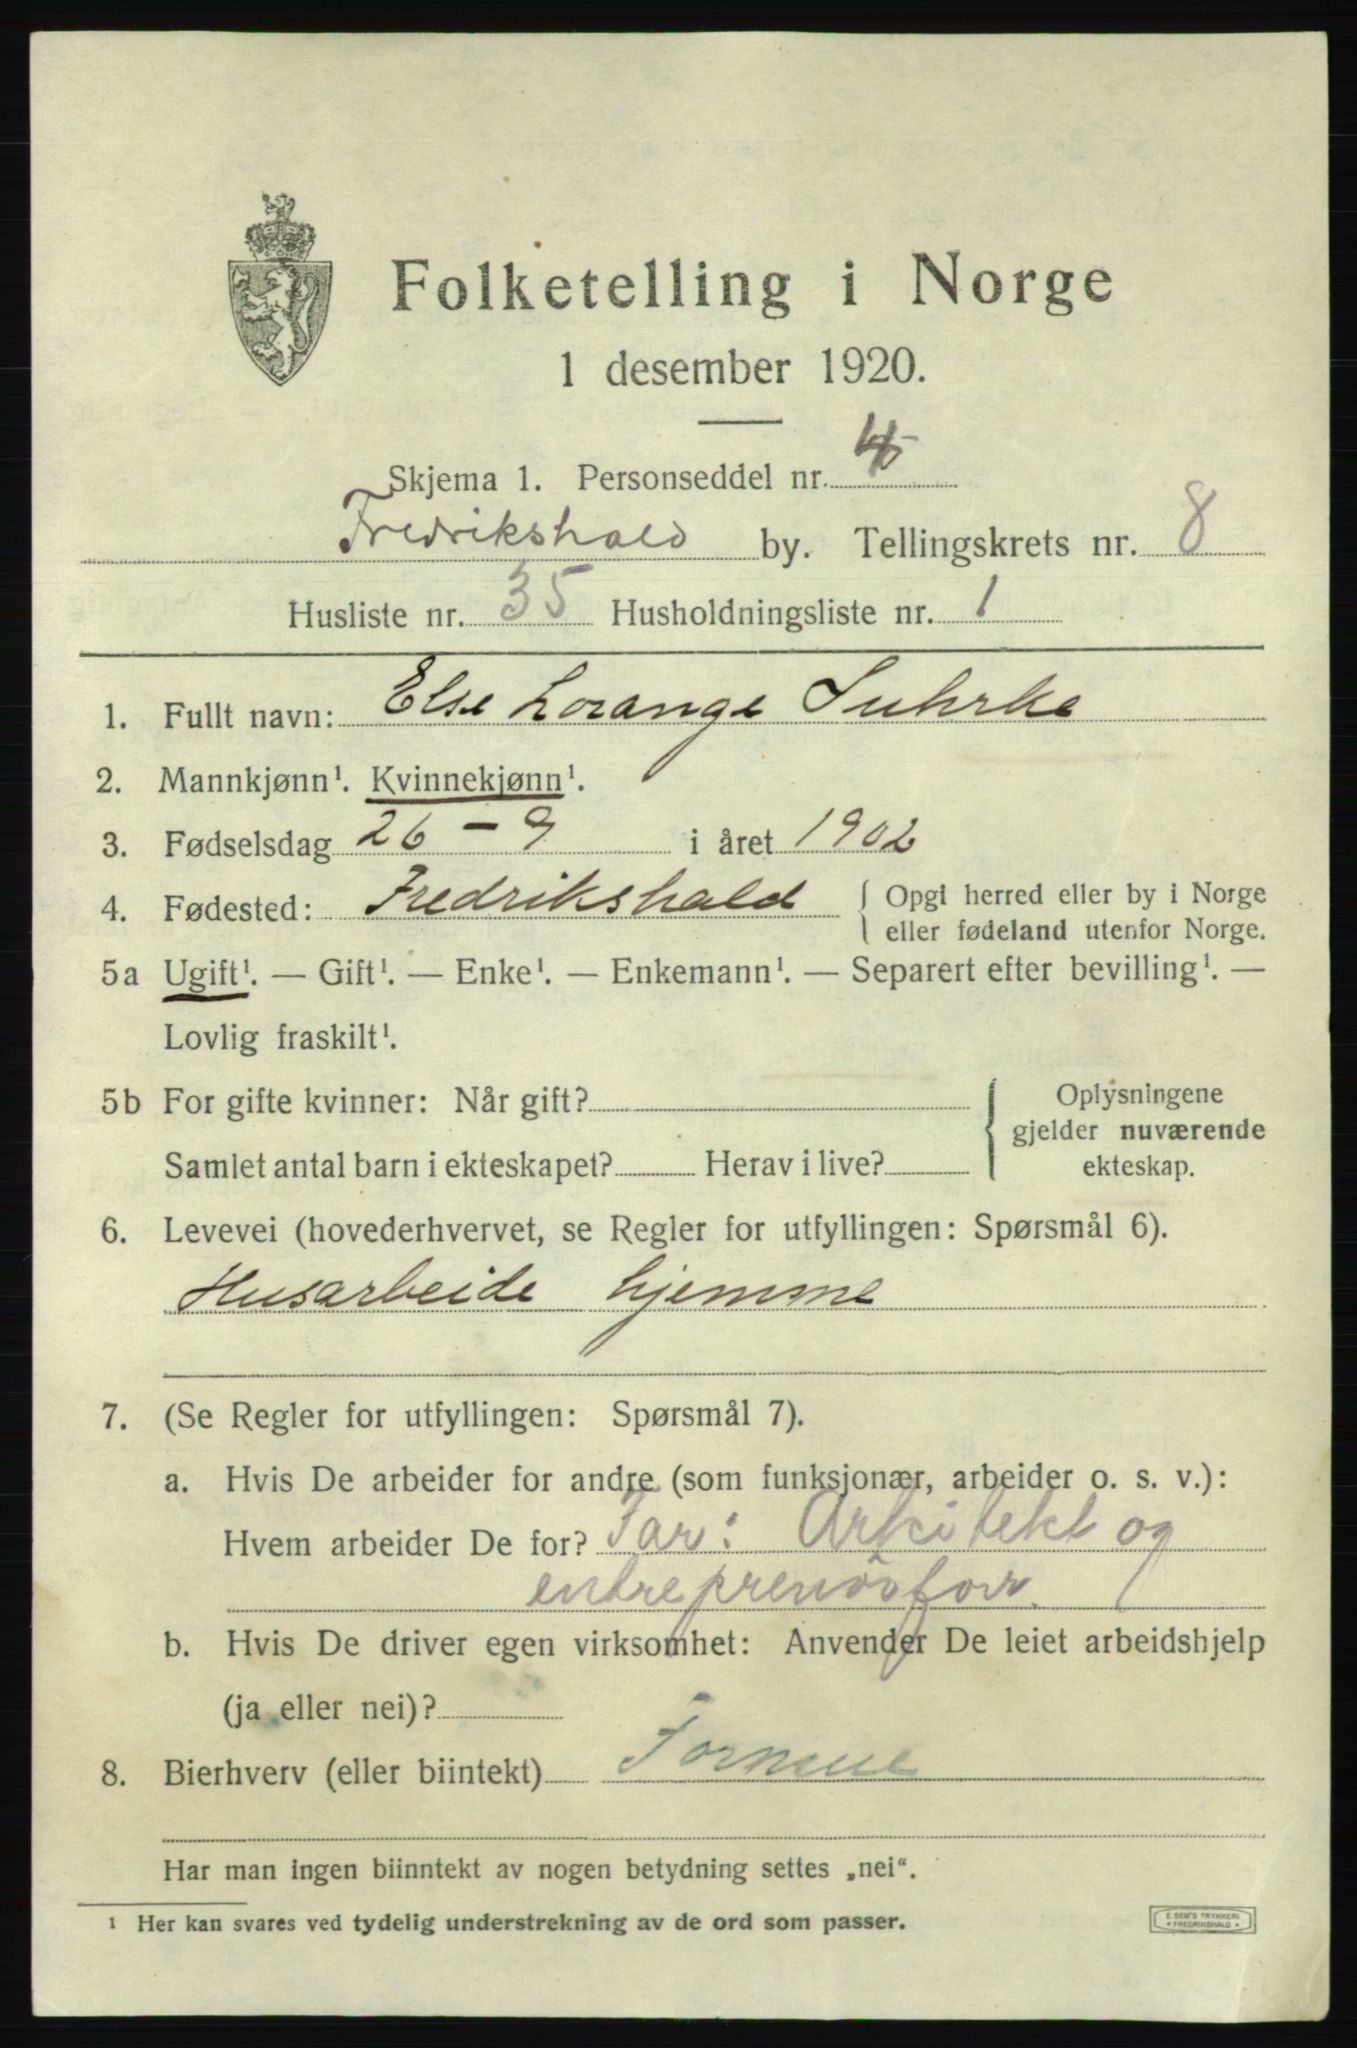 Folketelling i Norge
1 desember 1920.
Skjema 1. Personseddel nr. 4
Fredrikshald by. Tellingskrets nr. 8
Husliste nr. 35 Husholdningsliste nr. 1
1. Fullt navn: Else Lorange Suhrke
2. Mannkjønn¹. Kvinnekjønn¹.
3. Fødselsdag 26 – 9 i året 1902
4. Fødested: Fredrikshald { Opgi herred eller by i Norge
eller fødeland utenfor Norge.
5a Ugift¹. — Gift¹. — Enke¹. — Enkemann¹. — Separert efter bevilling¹. —
Lovlig fraskilt¹.
5b For gifte kvinner: Når gift? { Oplysningene
gjelder nuværende
Samlet antal barn i ekteskapet? Herav i live? ekteskap.
6. Levevei (hovederhvervet, se Regler for utfyllingen: Spørsmål 6).
Husarbeide hjemme
7. (Se Regler for utfyllingen: Spørsmål 7).
a. Hvis De arbeider for andre (som funksjonær, arbeider o. s. v.):
Hvem arbeider De for? Far: Arkitekt og
b. Hvis De driver egen virksomhet: Anvender De leiet arbeidshjelp
(ja eller nei)?
8. Bierhverv (eller biintekt)
Har man ingen biinntekt av nogen betydning settes „nei“.
¹ Her kan svares ved tydelig understrekning av de ord som passer.
E. SEM'S TRYKKERI
• FREDRIKSHALD •